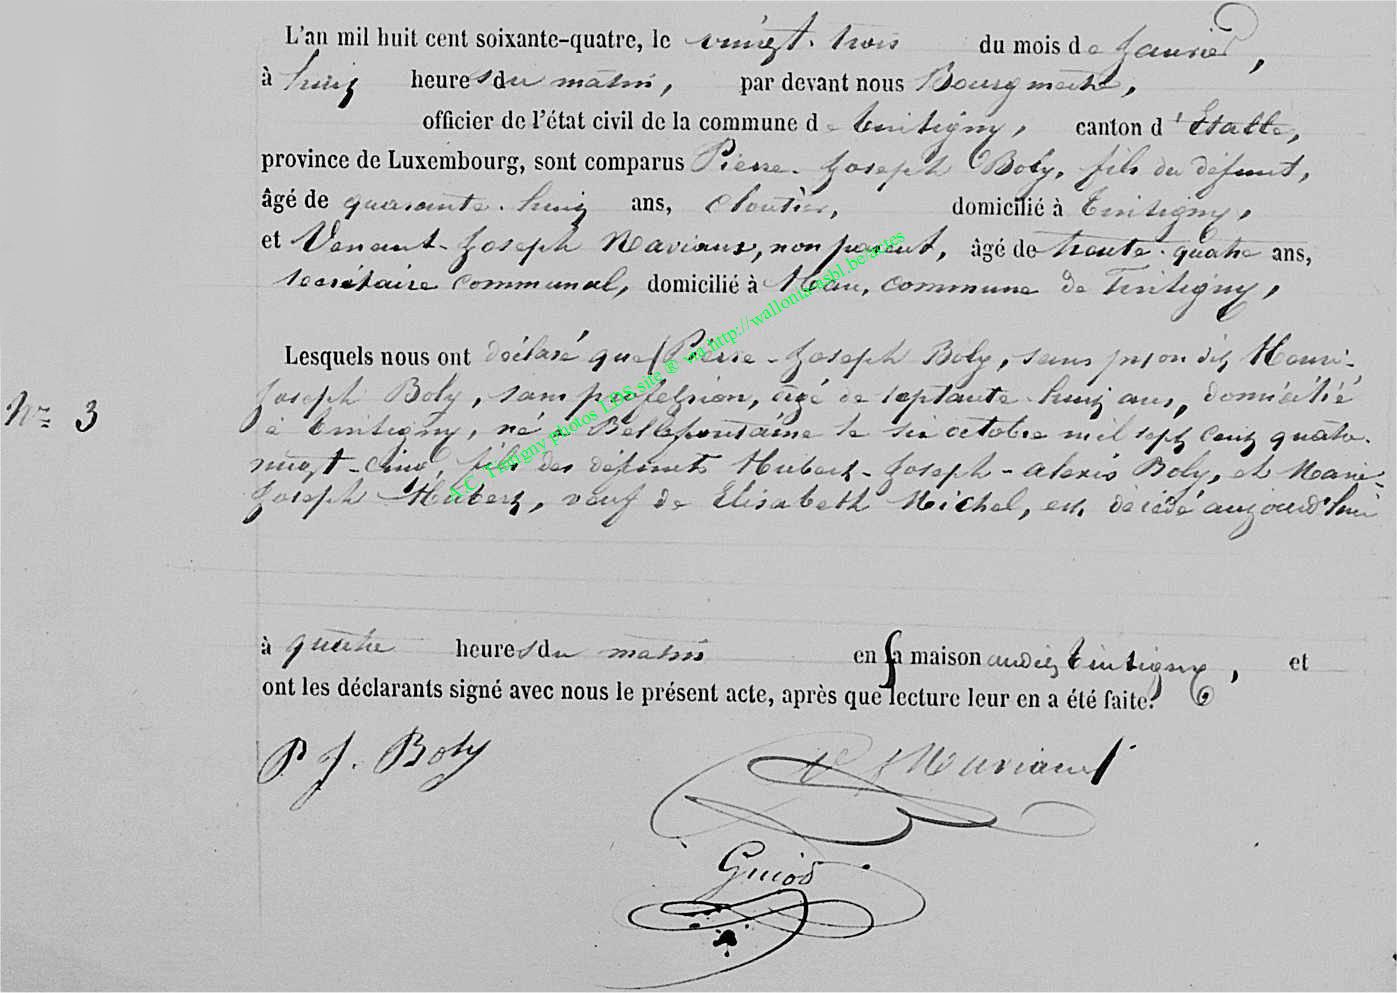 L'an mil huit cent soixante-quatre, le vingt-trois du mois de Janvier,
à huit heures du matin, par devant nous Bourgmestre,
officier de l'état civil de la commune de Tintigny, canton d'Etalle,
province de Luxembourg, sont comparus Pierre-Joseph Boly, fils du défunt,
âgé de quarante-huit ans, cloutier, domicilié à Tintigny,
et Venant-Joseph Maviaux, non parent, âgé de trente-quatre ans,
secrétaire communal, domicilié à Han, commune de Tintigny,
Lesquels nous ont déclaré que Pierre-Joseph Boly, sans dit Henri-
Nº 3
Joseph Boly, sans profession, âgé de septante-huit ans, domicilié
à Tintigny, né à Bellefontaine le six octobre mil sept cent quatre-
vingt-cinq, fils des défunts Hubert-Joseph-Alexis Boly, et Marie-
Joseph Hubert, veuf de Elisabeth Michel, est décédé aujourd'hui
à quatre heures du matin en sa maison audit Tintigny, et
ont les déclarants signé avec nous le présent acte, après que lecture leur en a été faite.
P. J. Boly V J Maviaux
Guiod
A.C. Tintigny photos LDS site ® via http://wallonia-asbl.be/actes